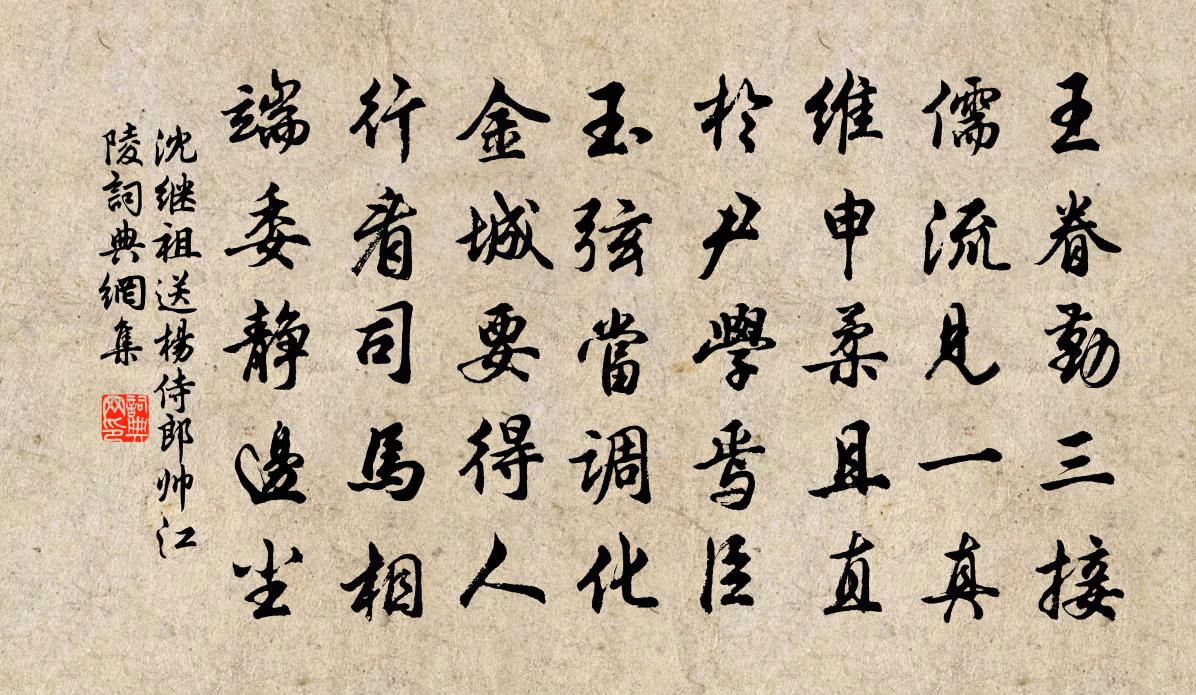 王眷勤三接
儒流見一真
維申柔且直
於尹學焉臣
玉弦當調化
金城要得人
行看司馬相
端委靜邊尘
沈继祖送楊侍郎帅江
陵詞典網集
詞典
网印